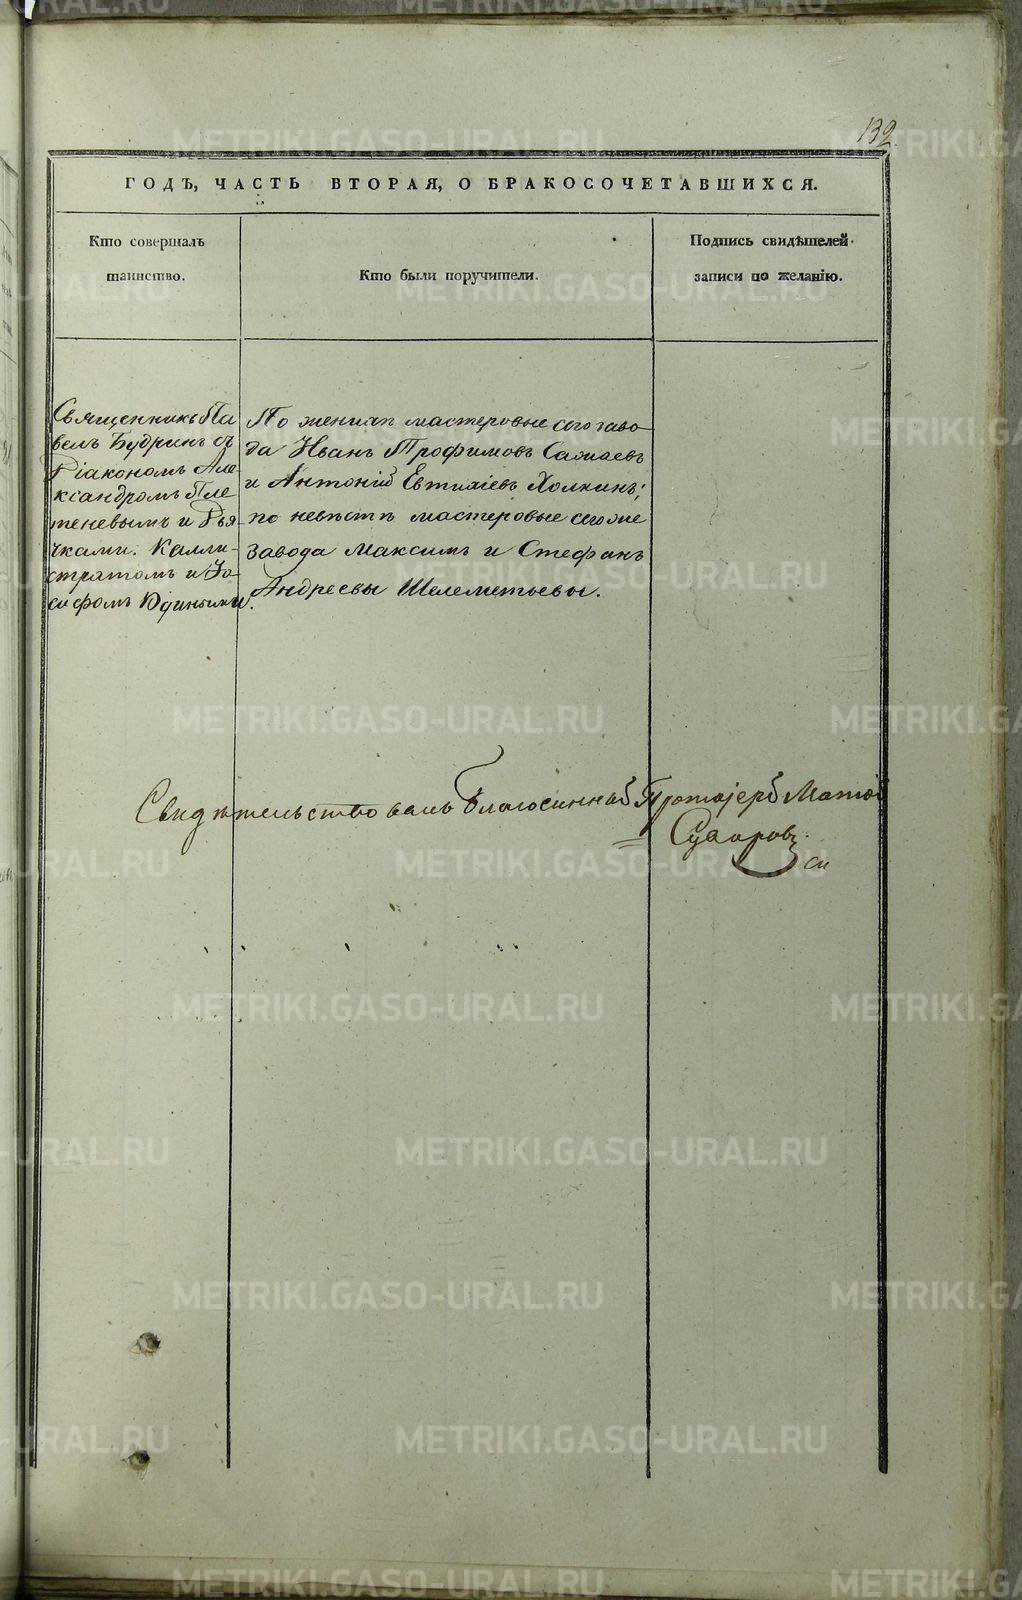 132
ГОДЪ, ЧАСТЬ ВТОРАЯ, О БРАКОСОЧЕТАВШИХСЯ.
Кто совершалъ
таинство.
Кто были поручители.
Подпись свидѣтелей
записи по желанію.
Священникъ Па
велъ Будринъ съ
Діакономъ Але
ксандромъ Пле
теневымъ и Дья
чками. Калли-
стратомъ и Іо
сифомъ
По женихѣ мастеровые сего заво
да Иванъ Трофимовъ
и Антоній Евтихіевъ Холкинъ;
по невѣстѣ мастеровые сегоже
завода Максимъ и Стефанъ
Андреевы Шелеметьевы.
Свидѣтельствовалъ Благочинный Протоіерей
METRIKI.GASO-URAL.RU